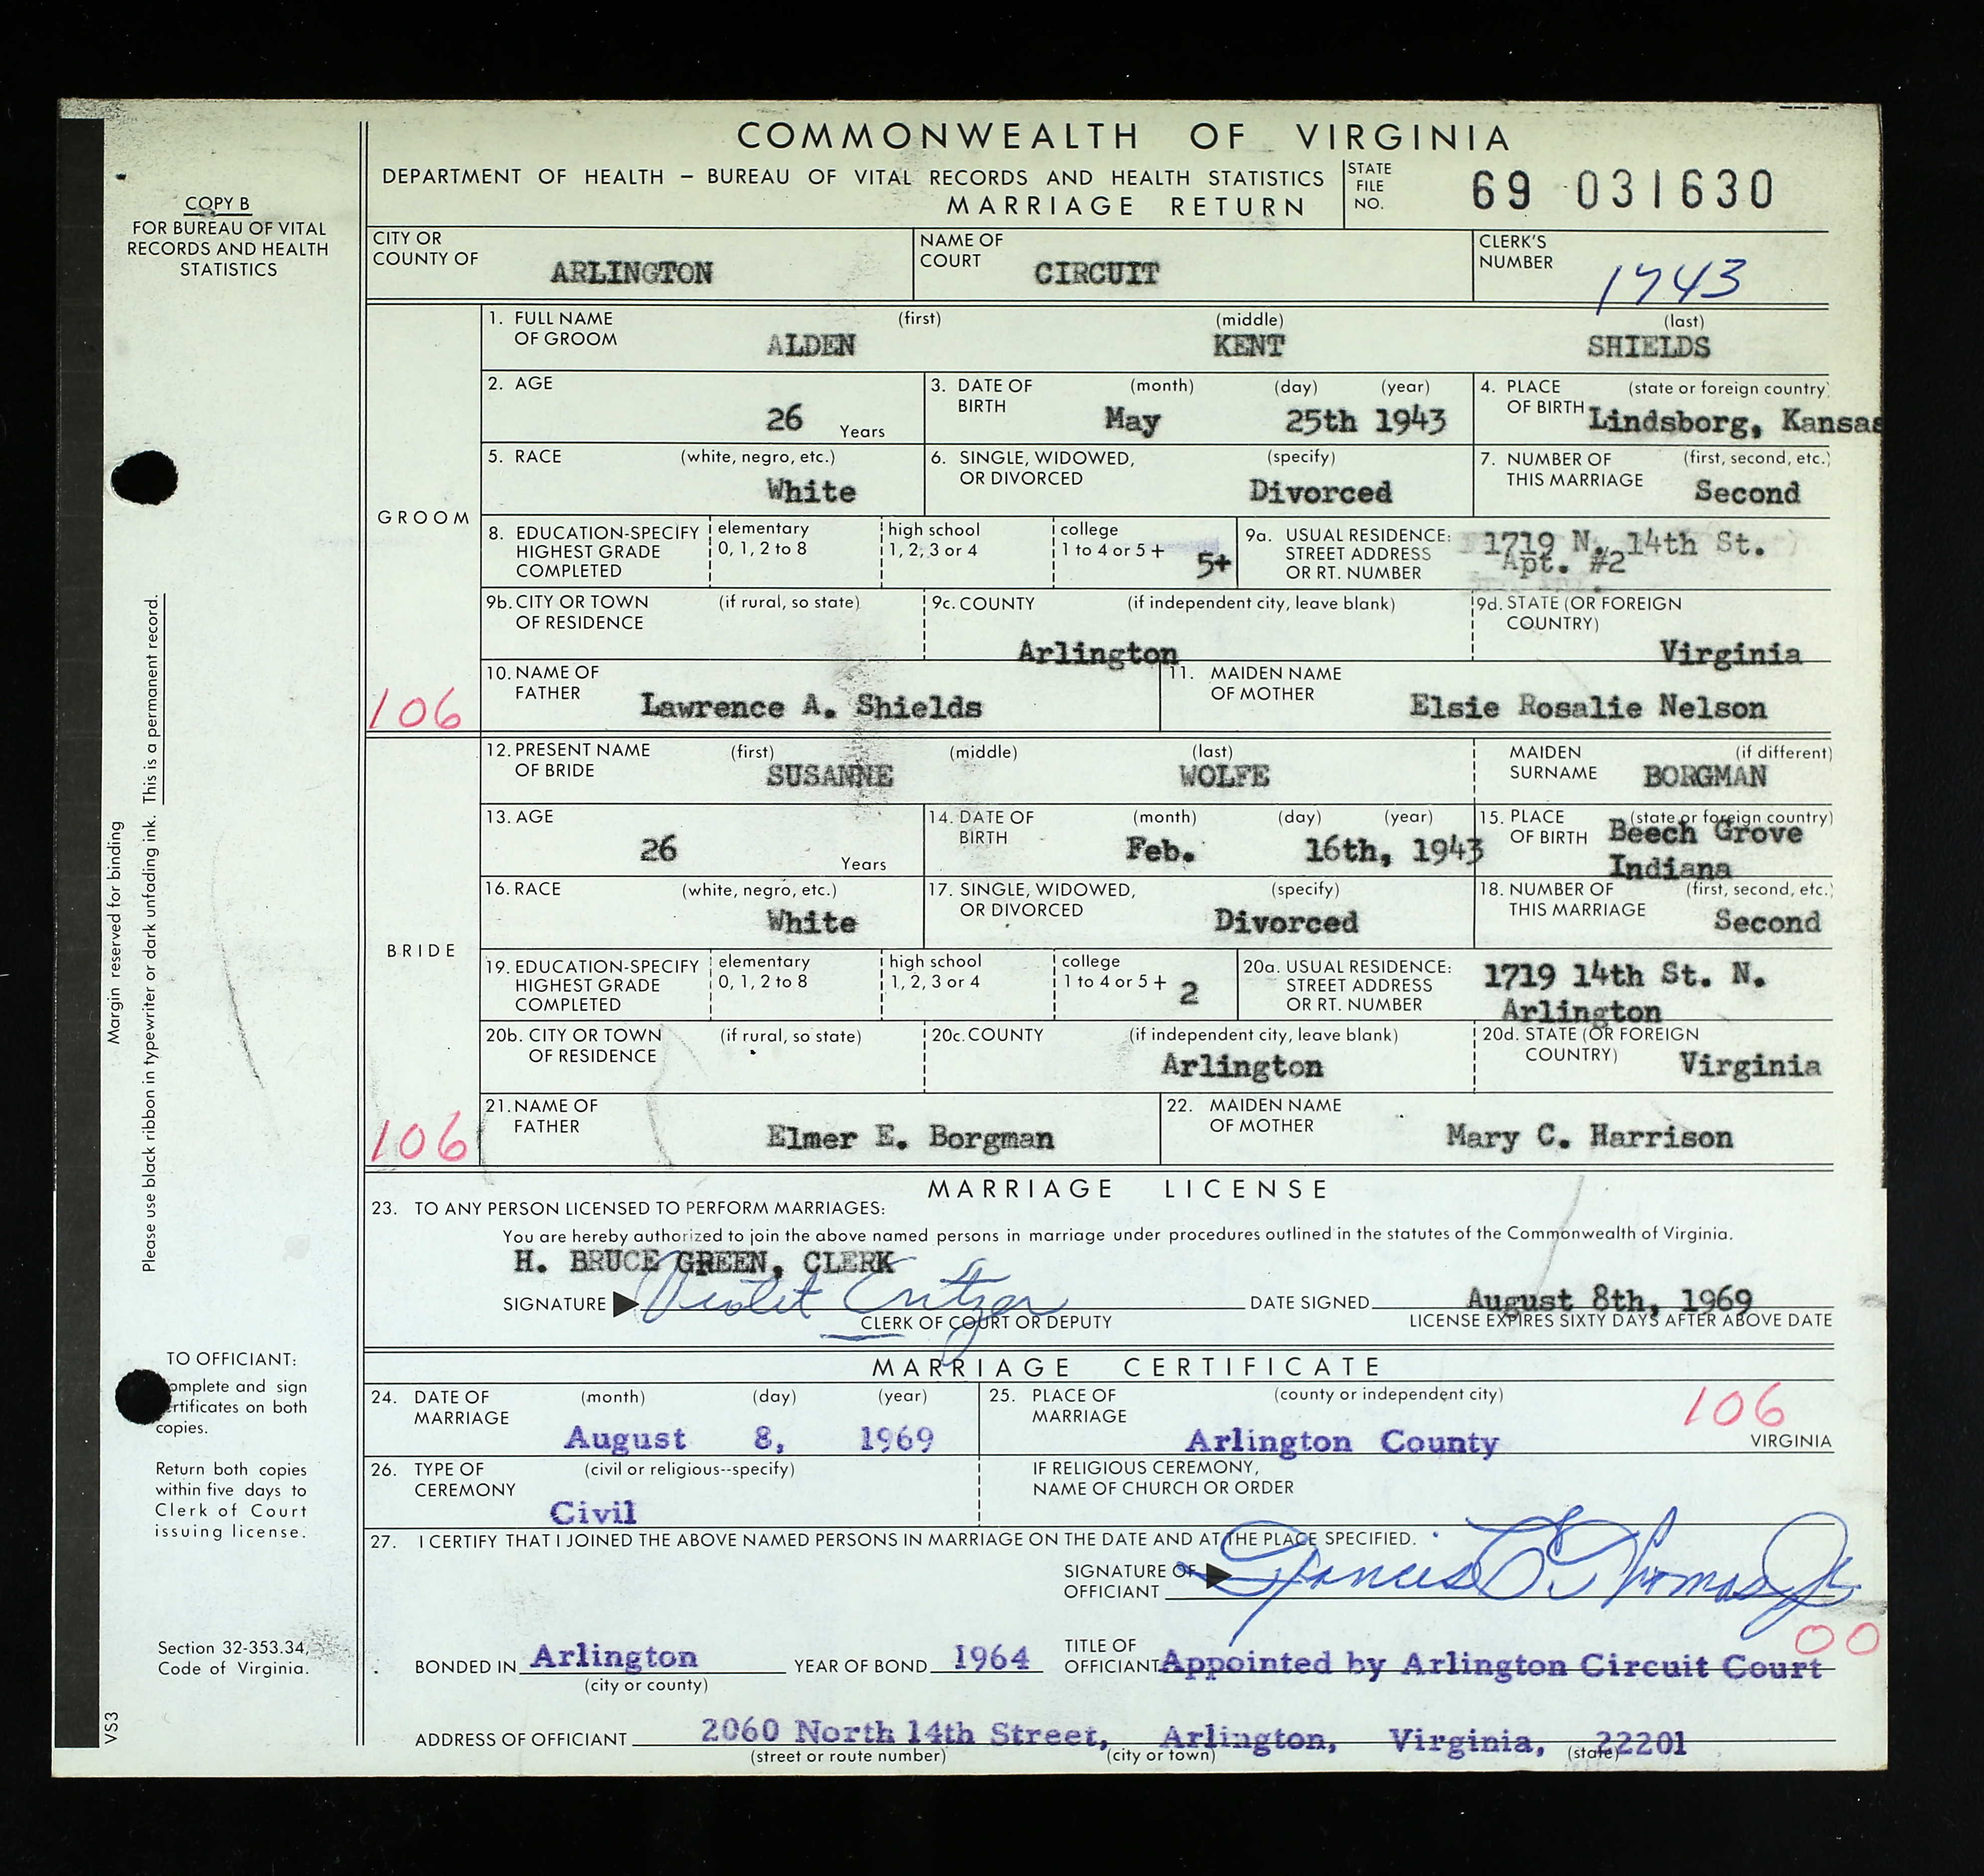 COMMONWEALTH OF VIRGINIA
DEPARTMENT OF HEALTH — BUREAU OF VITAL RECORDS AND HEALTH STATISTICS
MARRIAGE RETURN
STATE FILE NO. 69 031630
COPY B
FOR BUREAU OF VITAL
RECORDS AND HEALTH
STATISTICS
CITY OR COUNTY OF ARLINGTON
NAME OF COURT CIRCUIT
CLERK'S NUMBER 1743
GROOM
106
1. FULL NAME OF GROOM (first) ALDEN (middle) KENT (last) SHIELDS
2. AGE 26 Years
3. DATE OF BIRTH (month) (day) (year) May 25th 1943
4. PLACE OF BIRTH (state or foreign country) Lindsborg, Kansas
5. RACE (white, negro, etc.) White
6. SINGLE, WIDOWED, OR DIVORCED (specify) Divorced
7. NUMBER OF THIS MARRIAGE (first, second, etc.) Second
8. EDUCATION-SPECIFY HIGHEST GRADE COMPLETED elementary 0, 1, 2 to 8 high school 1, 2, 3 or 4 college 1 to 4 or 5+ 5+
9a. USUAL RESIDENCE: STREET ADDRESS OR RT. NUMBER 1719 N. 14th St. Apt. #2
9b. CITY OR TOWN OF RESIDENCE (if rural, so state)
9c. COUNTY (if independent city, leave blank) Arlington
9d. STATE (OR FOREIGN COUNTRY) Virginia
10. NAME OF FATHER Lawrence A. Shields
11. MAIDEN NAME OF MOTHER Elsie Rosalie Nelson
BRIDE
106
12. PRESENT NAME OF BRIDE (first) SUSANNE (middle) (last) WOLFE
MAIDEN SURNAME (if different) BORGMAN
13. AGE 26 Years
14. DATE OF BIRTH (month) (day) (year) Feb. 16th, 1943
15. PLACE OF BIRTH (state or foreign country) Beech Grove Indiana
16. RACE (white, negro, etc.) White
17. SINGLE, WIDOWED, OR DIVORCED (specify) Divorced
18. NUMBER OF THIS MARRIAGE (first, second, etc.) Second
19. EDUCATION-SPECIFY HIGHEST GRADE COMPLETED elementary 0, 1, 2 to 8 high school 1, 2, 3 or 4 college 1 to 4 or 5+ 2
20a. USUAL RESIDENCE: STREET ADDRESS OR RT. NUMBER 1719 14th St. N. Arlington
20b. CITY OR TOWN OF RESIDENCE (if rural, so state)
20c. COUNTY (if independent city, leave blank) Arlington
20d. STATE (OR FOREIGN COUNTRY) Virginia
21. NAME OF FATHER Elmer E. Borgman
22. MAIDEN NAME OF MOTHER Mary C. Harrison
MARRIAGE LICENSE
23. TO ANY PERSON LICENSED TO PERFORM MARRIAGES:
You are hereby authorized to join the above named persons in marriage under procedures outlined in the statutes of the Commonwealth of Virginia.
H. BRUCE GREEN, CLERK
SIGNATURE Violet Critzer DATE SIGNED August 8th, 1969
CLERK OF COURT OR DEPUTY LICENSE EXPIRES SIXTY DAYS AFTER ABOVE DATE
MARRIAGE CERTIFICATE
24. DATE OF MARRIAGE (month) (day) (year) August 8, 1969
25. PLACE OF MARRIAGE (county or independent city) Arlington County VIRGINIA
106
26. TYPE OF CEREMONY (civil or religious--specify) Civil
IF RELIGIOUS CEREMONY, NAME OF CHURCH OR ORDER
27. I CERTIFY THAT I JOINED THE ABOVE NAMED PERSONS IN MARRIAGE ON THE DATE AND AT THE PLACE SPECIFIED.
SIGNATURE OF OFFICIANT Francis E. Thomas Jr
00
BONDED IN Arlington (city or county) YEAR OF BOND 1964 TITLE OF OFFICIANT Appointed by Arlington Circuit Court
ADDRESS OF OFFICIANT 2060 North 14th Street, Arlington, Virginia, 22201
(street or route number) (city or town) (state)
Margin reserved for binding
Please use black ribbon in typewriter or dark unfading ink. This is a permanent record.
TO OFFICIANT:
omplete and sign
ertificates on both
copies.
Return both copies
within five days to
Clerk of Court
issuing license.
Section 32-353.34,
Code of Virginia.
VS3